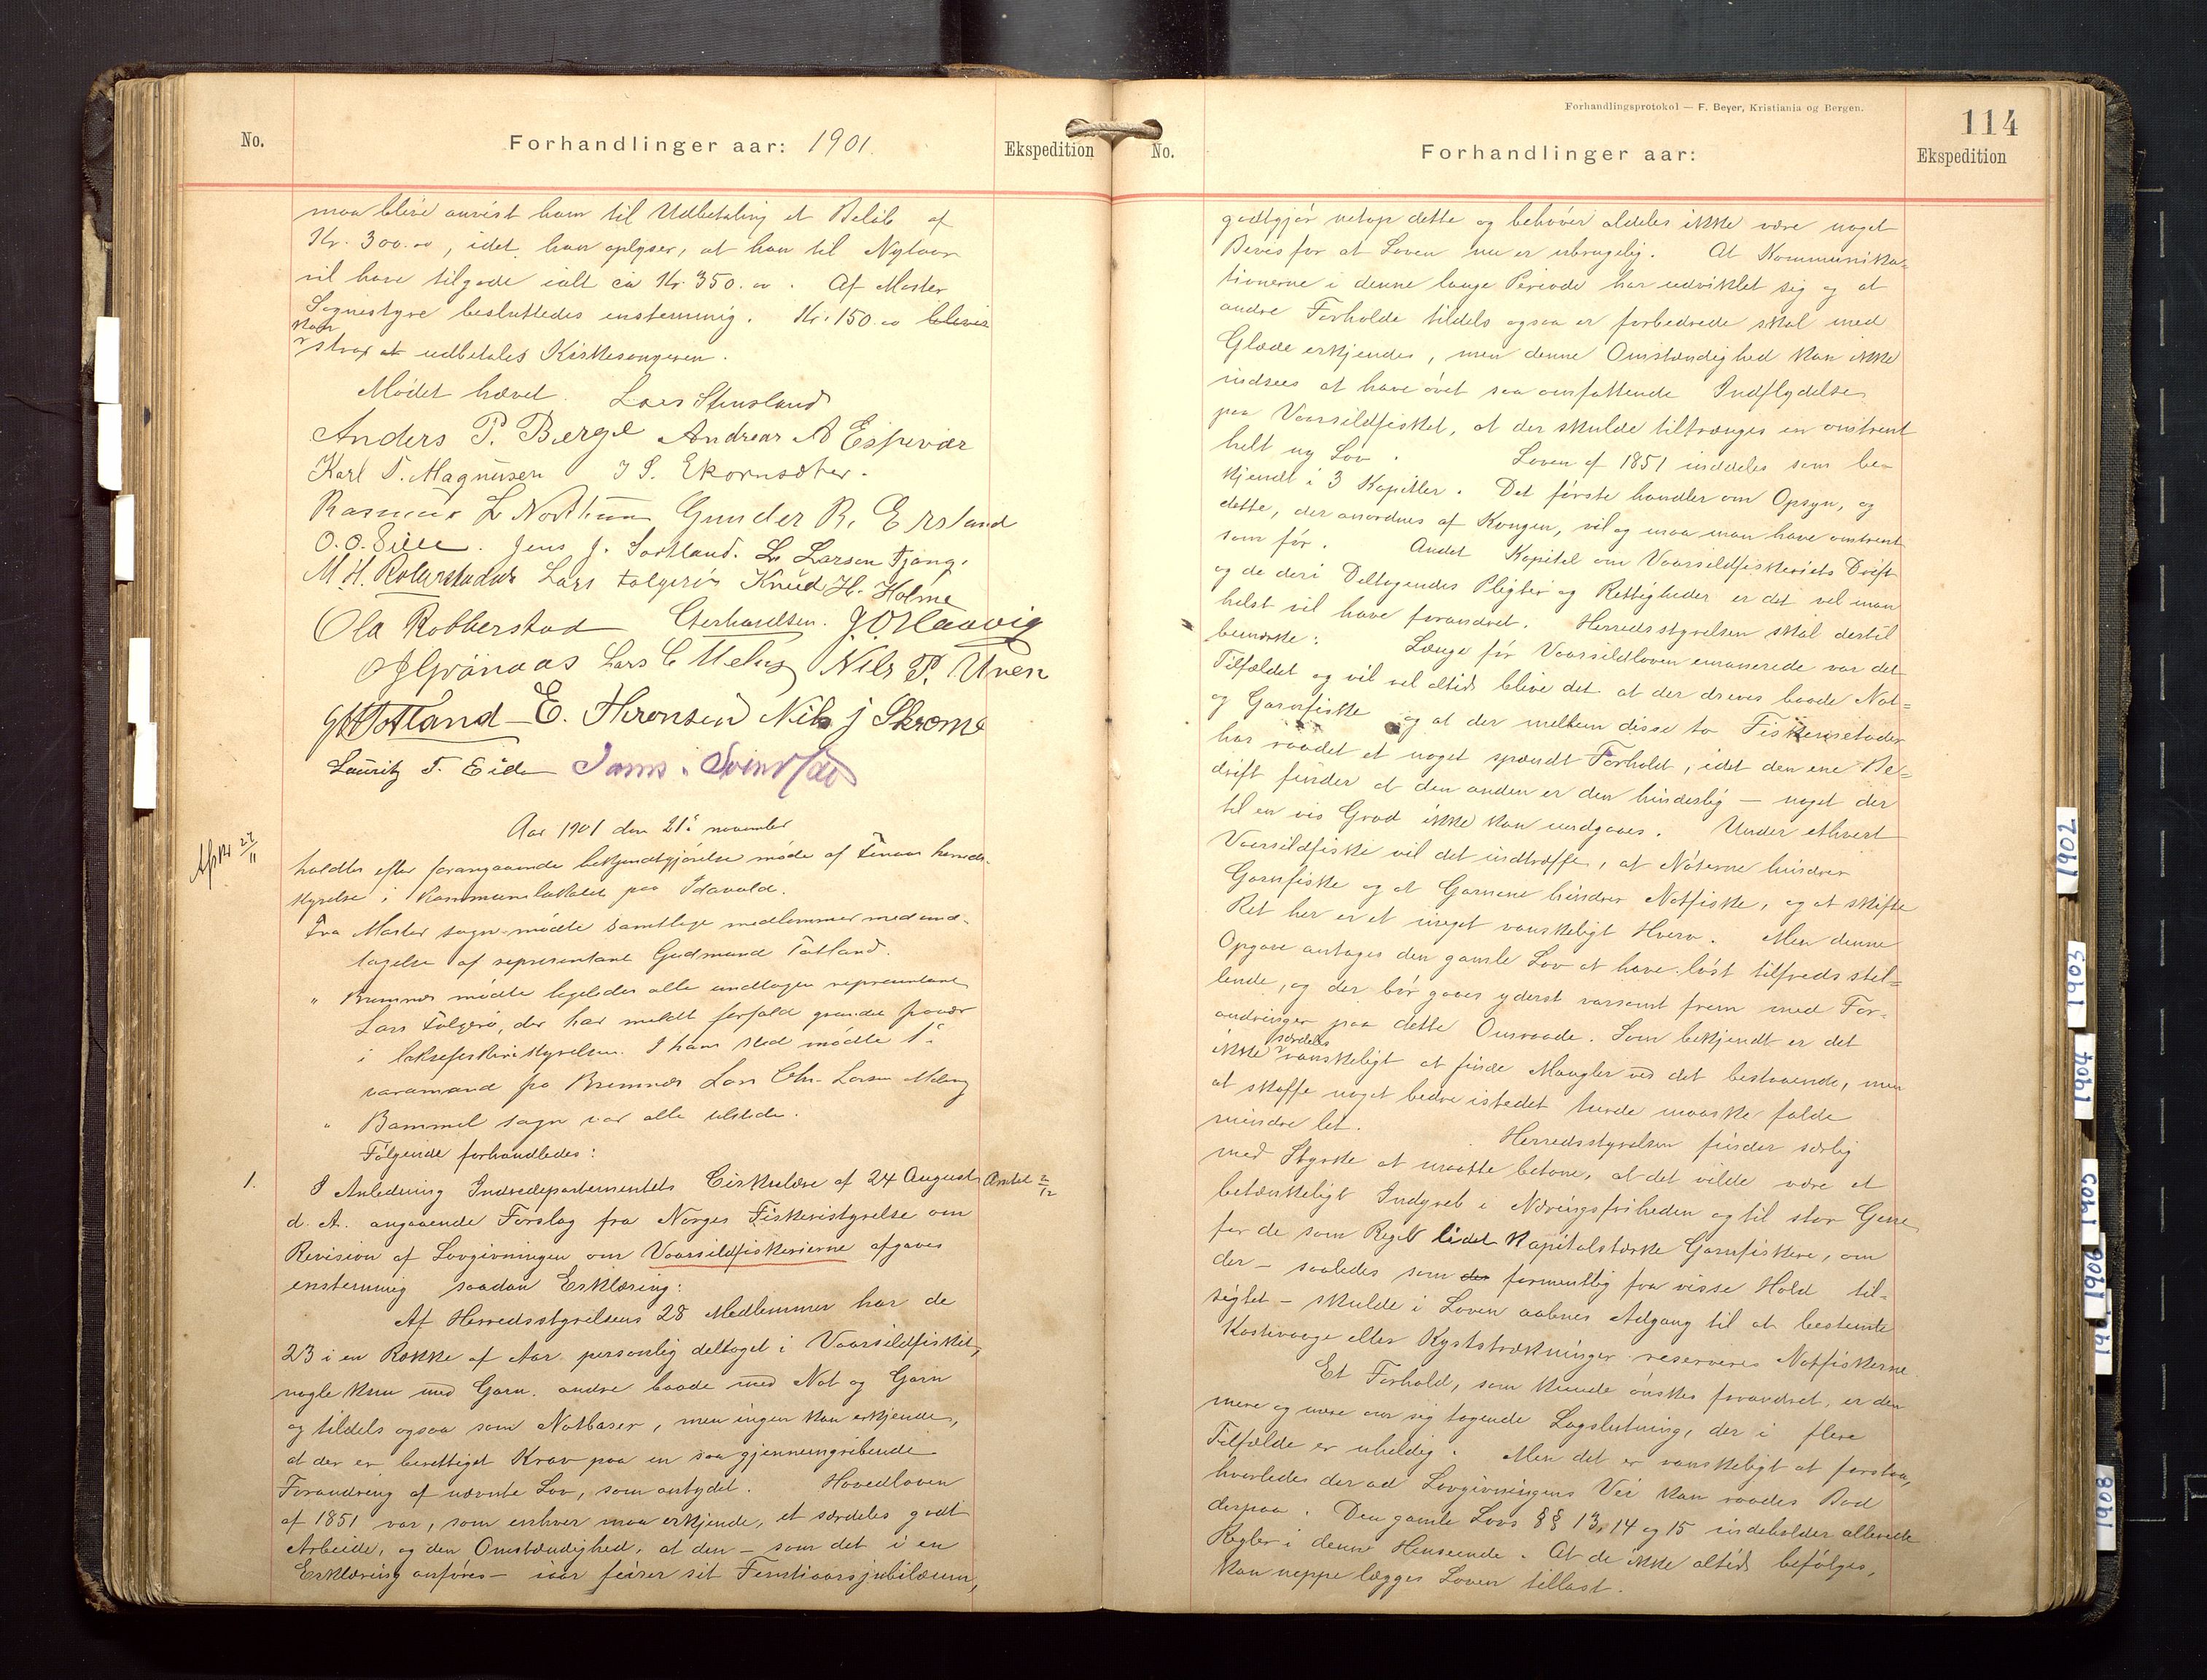 No.
Forhandlinger aar: 1901.
Ekspedition
maa blive anvist ham til Udbetaling et Beløb af
Kr. 300.00, idet han oplyser, at han til Nytaar
vil have tilgode ialt ca Kr. 350.00. Af Moster
Sognestyre besluttedes enstemmig. Kr. 150.00 bliver
kan
strax at udbetales Kirkesangeren.
Mødet hævet. Lars Stensland
Anders P. Bærge Andreas A Espevær
Karl T. Magnusen J S. Ekornsæter.
Rasmus L Gunder R. Ersland
O. O. Jens J. Sortland. L. Larsen Tjong.
M. H. Lars Folgerø Knud H. Holme
Ola Robberstad Gerhardsen. J. O. Haavig
Grönaas Lars C Meling Nils P. Uren
Totland E. Nils J Skrome
Lauritz T. Eide
Aar 1901 den 21de november
Afskr 27/11
holdtes efter forangaaende bekjendtgjørelse møde af Finaas herreds-
styrelse i kommunelokalet paa Idavald.
Fra Moster sogn mødte samtlige medlemmer med und-
tagelse af representant Gudmund Totland.
" Bremnes mødte ligeledes alle undtagen representant
Lars Folgerø, der har meldt forfald grundet
i laksefiskeristyrelsen. I hans sted mødte 1ste
varamand fra Bremnes Lars Chr. Larsen Meling
" Bømmel sogn var alle tilstede.
Følgende forhandledes:
1.
I Anledning Indredepartementets Cirkulære af 24 August
Amtet 2/12
d. A. angaaende Forslag fra Norges Fiskeristyrelse om
Revision af Lovgivningen om Vaarsildfiskerierne afgaves
enstemmig saadan Erklæring:
Af Herredsstyrelsens 28 Medlemmer har de
23 i en Række af Aar personlig deltaget i Vaarsildfisket,
nogle kun med Garn, andre baade med Not og Garn
og tildels ogsaa som Notbaser, men ingen kan erkjende,
at der er berettiget Krav paa en saa gjennemgribende
Forandring af nævnte Lov, som antydet. Hovedloven
af 1851 var, som enhver maa erkjende, et særdeles godt
Arbeide, og den Omstændighed, at den – som det i en
Erklæring anføres – iaar feirer sit Femtiaarsjubilæum,
Forhandlingsprotokol — F. Beyer, Kristiania og Bergen.
114
No.
Forhandlinger aar:
Ekspedition
godtgjør netop dette og behøver aldeles ikke være noget
Bevis for at Loven nu er ubrugelig. At Kommunika-
tionerne i denne lange Periode har udviklet sig og at
andre Forholde tildels ogsaa er forbedrede skal med
Glæde erkjendes, men denne Omstændighed kan ikke
indsees at have øvet saa omfattende Indflydelse
paa Vaarsildfisket, at der skulde tiltrænges en omtrent
helt ny Lov. Loven af 1851 inddeles som be-
kjendt i 3 Kapitler. Det første handler om Opsyn, og
dette, der anordnes af Kongen, vil og maa man have omtrent
som før. Andet Kapitel om Vaarsildfiskeriets Drift
og de deri Deltagendes Pligter og Rettigheder er det vel man
helst vil have forandret. Herredsstyrelsen skal dertil
bemærke: Længe før Vaarsildloven emanerede var det
Tilfældet og vil vel altid blive det at der dreves baade Not-
og Garnfiske og at der mellem disse to Fiskemetoder
har raadet et noget spændt Forhold, idet den ene Be-
drift finder at den anden er den hinderlig – noget der
til en vis Grad ikke kan undgaaes. Under ethvert
Vaarsildfiske vil det indtræffe, at Nøterne hindrer
Garnfiske og at Garnene hindrer Notfiske, og at skifte
Ret her er et meget vanskeligt Hverv. Men denne
Opgave antages den gamle Lov at have løst tilfredsstil-
lende, og der bør gaaes yderst varsomt frem med For-
andringer paa dette Omraade. Som bekjendt er det
særdeles
ikke vanskeligt at finde Mangler ved det bestaaende, men
at skaffe noget bedre istedet turde maaske falde
mindre let. Herredsstyrelsen finder særlig
med Styrke at maatte betone, at det vilde være et
betænkeligt Indgreb i Næringsfriheden og til stor Gene
for de som Regel lidet kapitalstærke Garnfiskere, om
der – saaledes som der formentlig fra visse Hold til-
sigtet – skulde i Loven aabnes Adgang til at bestemte
Kastevaage eller Kyststrækninger reserveres Notfiskerne.
Et Forhold, som kunde ønskes forandret, er den
mere og mere om sig tagende Lagslutning, der i flere
Tilfælde er uheldig. Men det er vanskeligt at forstaa,
hvorledes der ad Lovgivningens Vei kan raades Bod
derpaa. Den gamle Lovs §§ 13, 14 og 15 indeholder allerede
Regler i denne Henseende. At de ikke altid befølges,
kan neppe lægges Loven tillast.
1902
1903
1904
1905
1906
1908